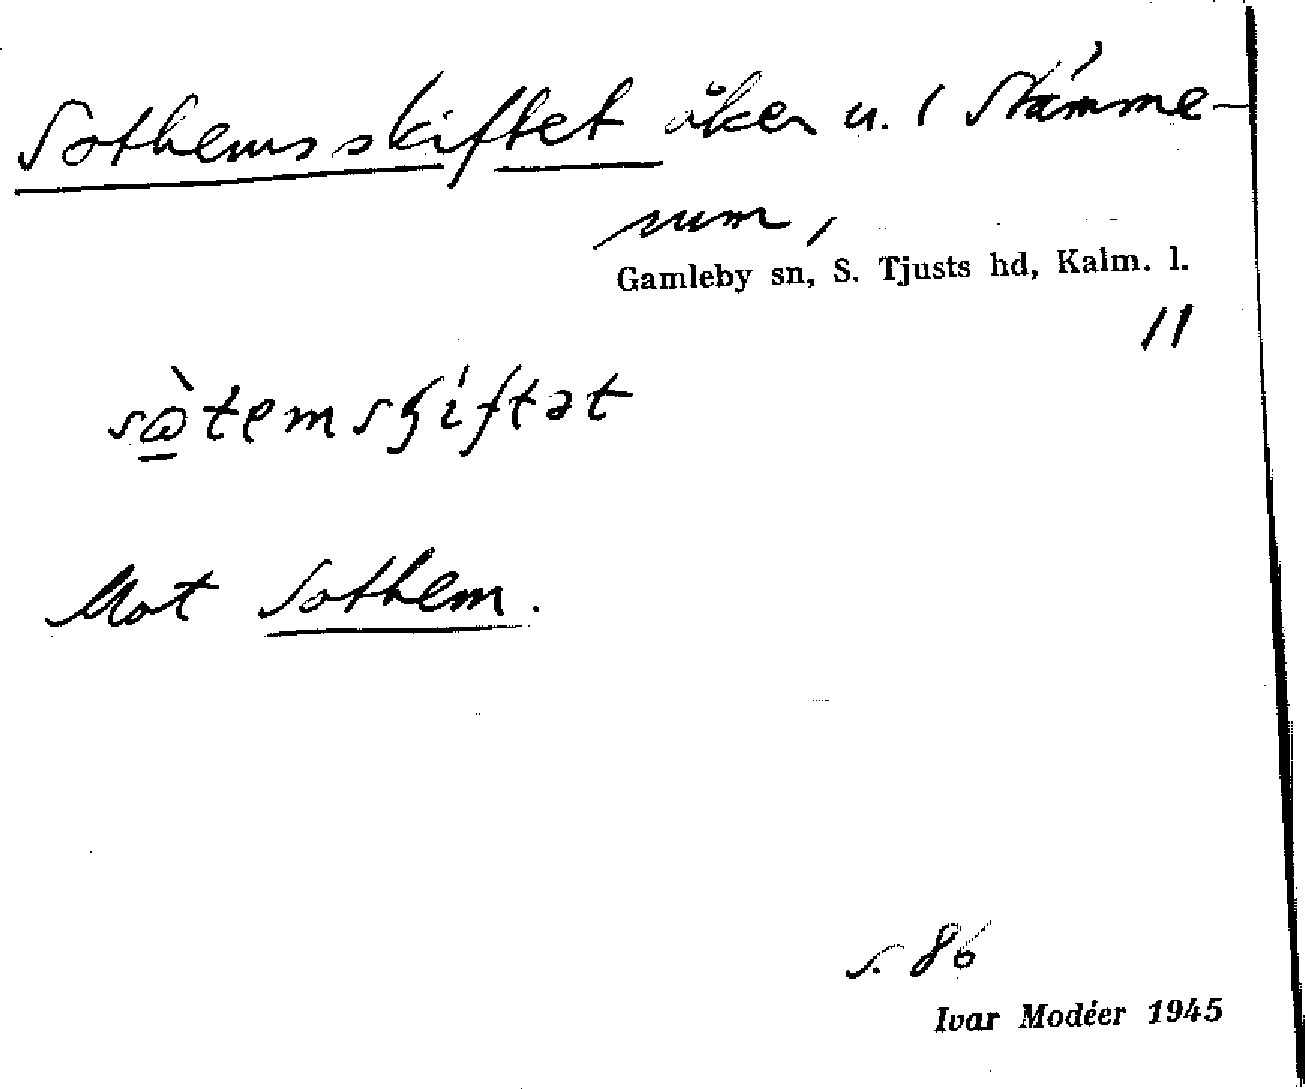 Sothemsskiftet åker u. 1 Stämme-
rum,
Gamleby sn, S. Tjusts hd, Kalm. l.
11
Mot Sothem.
s. 86
Ivar Modéer 1945